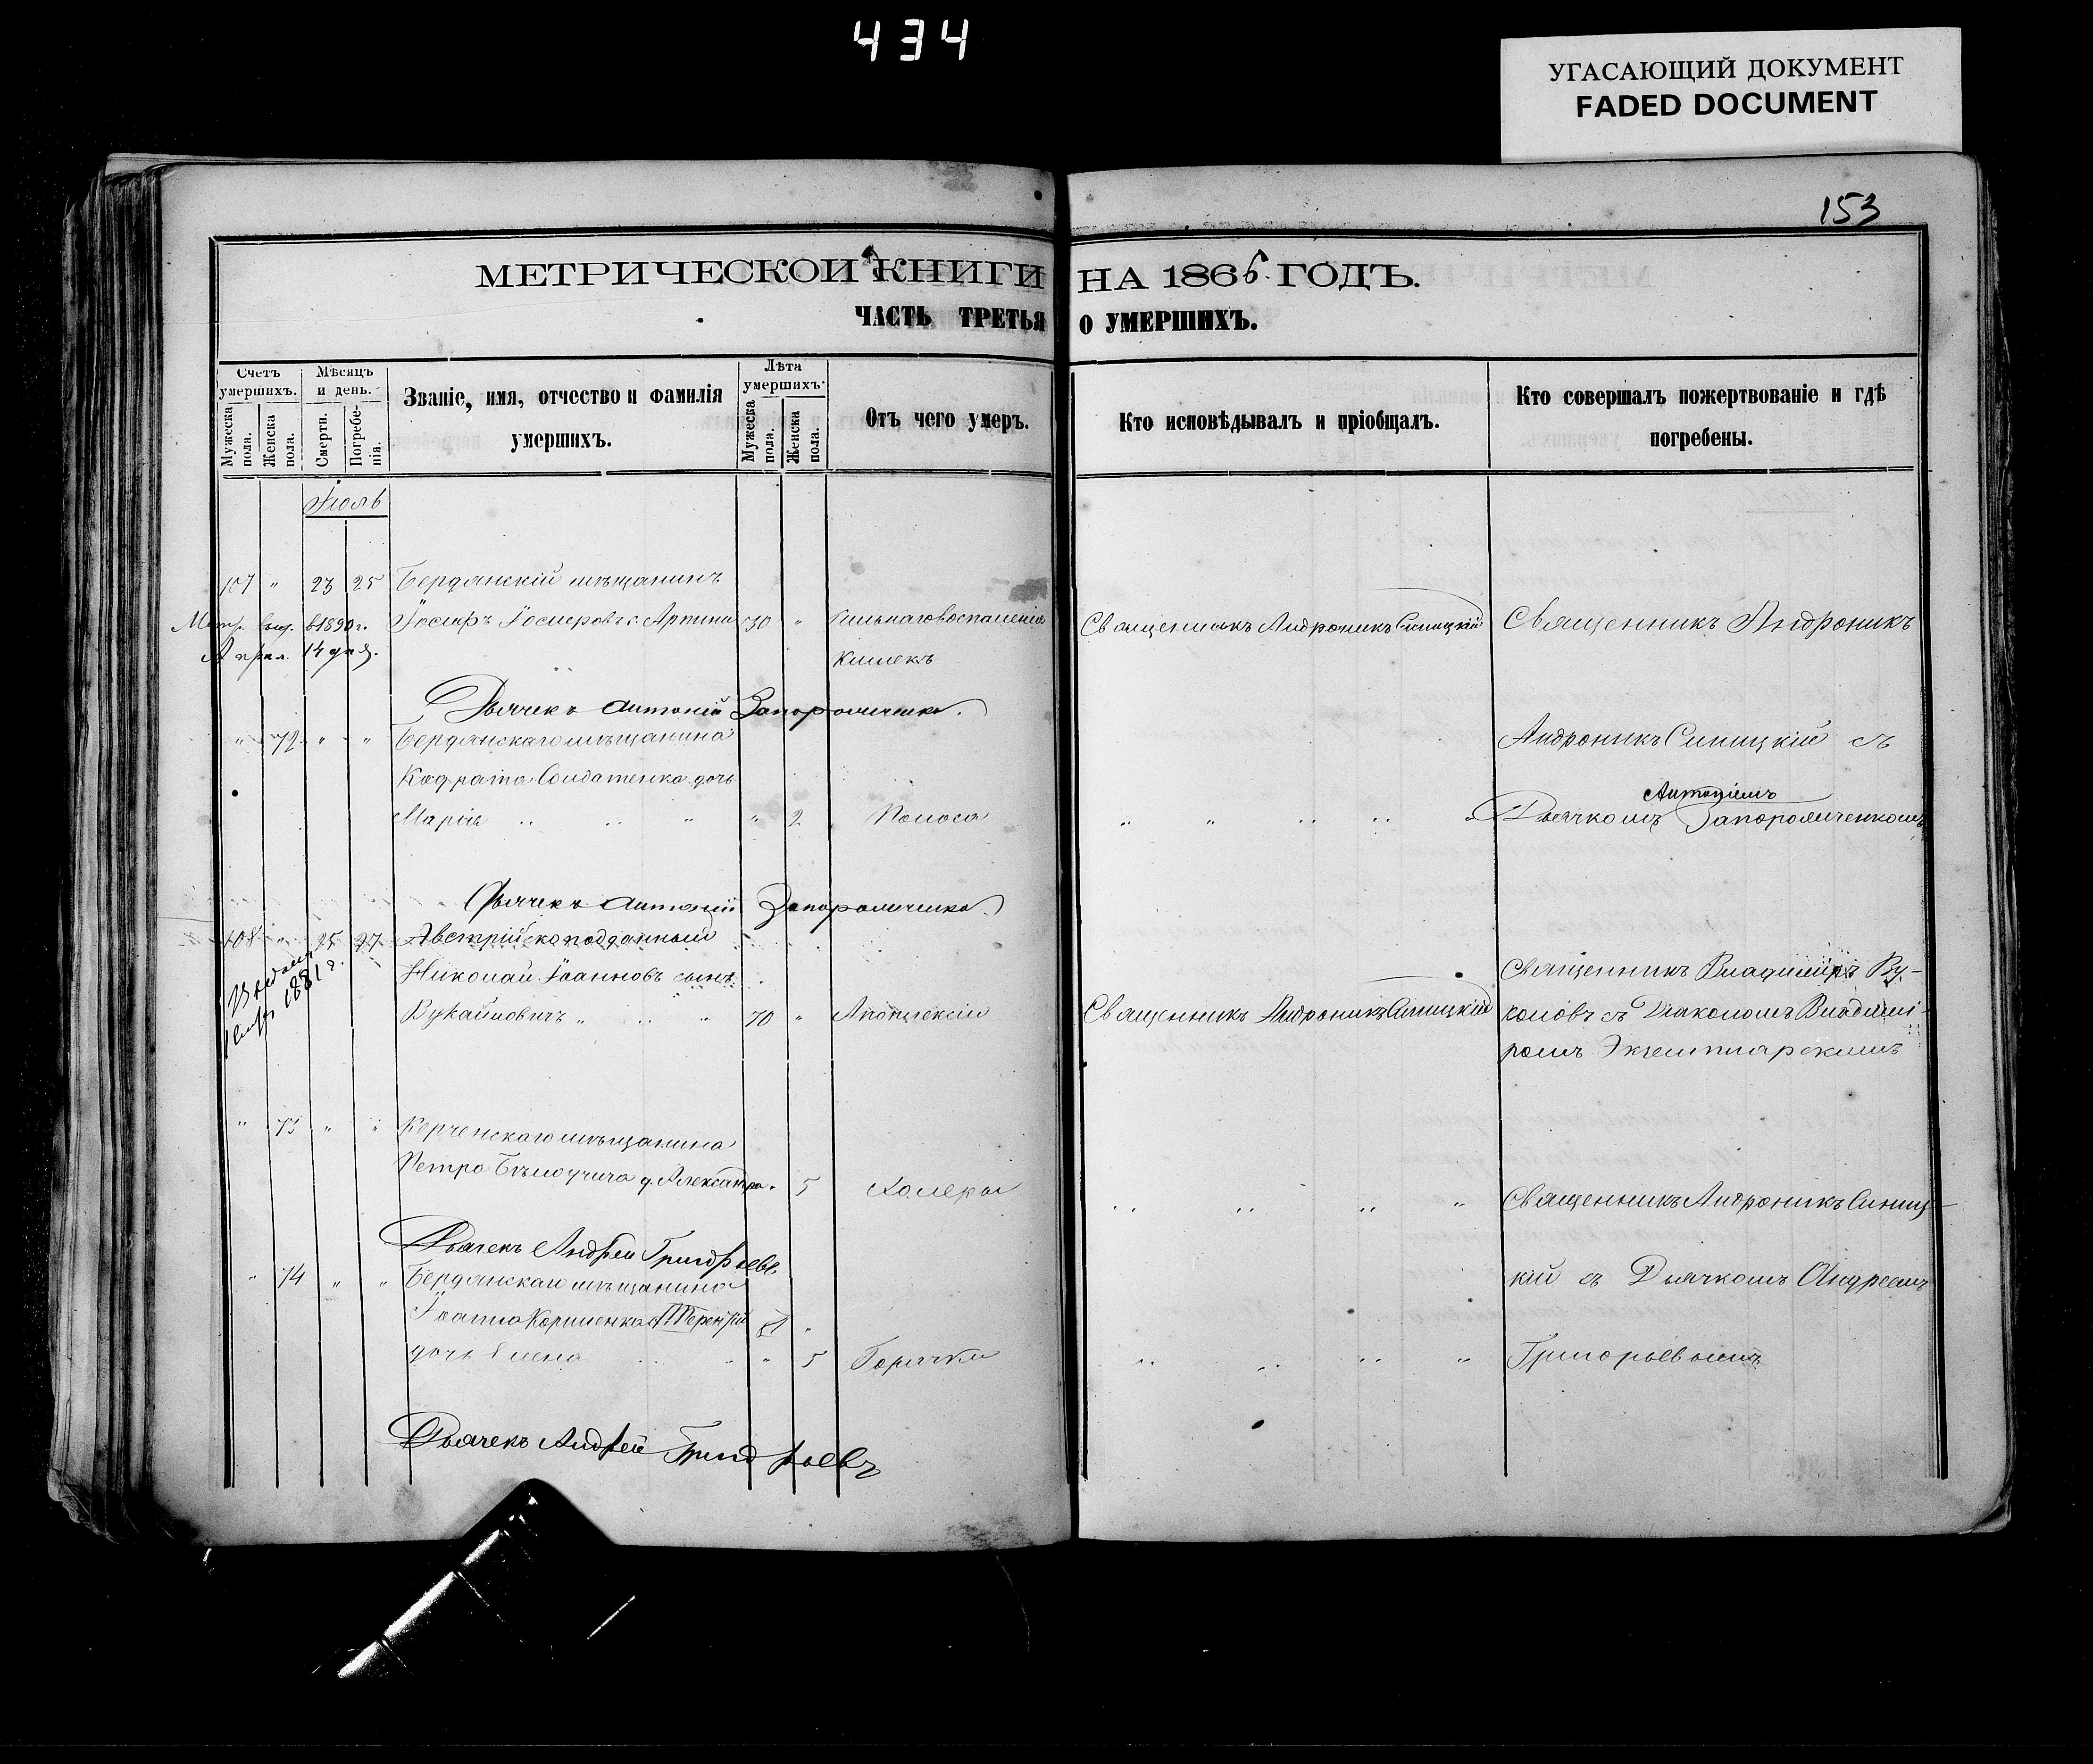 434
УГАСАЮЩИЙ ДОКУМЕНТ
FADED DOCUMENT
153
МЕТРИЧЕСКОЙ КНИГИ НА 1865 ГОДЪ.
ЧАСТЬ ТРЕТЬЯ О УМЕРШИХЪ.
Счетъ умершихъ.
Мужеска пола.
Женска пола.
Мѣсяцъ и день.
Смерти.
Погребенія.
Званіе, имя, отчество и фамилія умершихъ.
Лѣта умершихъ.
Мужеска пола.
Женска пола.
Отъ чего умеръ.
Кто исповѣдывалъ и пріобщалъ.
Кто совершалъ пожертвованіе и гдѣ погребены.
Іюль
107 " 23 25 Бердянскій мѣщанинъ
Метр. выд. в 1890 г. Іосифъ " воспаленія Священникъ Андроникъ Синицкій Священникъ Андроникъ
Апрел. 14 дня. кишекъ
Дьячекъ Антоній Запорожченко.
" 72 " " Бердянскаго мѣщанина Андроникъ Синицкій съ
Кодрата Солдатенка дочь Антоніемъ
Марія " 2 Поноса Дьячкомъ Запорожченкомъ
Дьячекъ Антоній Запорожченко.
108 " 25 27 Австрійскоподданный
Выдана 1881 г. Николай Іоанновъ сынъ Священникъ Владиміръ Ву-
70 " Апоплексіи Священникъ Андроникъ Синицкій коловъ съ Діакономъ Владимі-
ромъ Экземплярскимъ
" 73 " " Керченскаго мѣщанина
Петра д. Александра 5 Холеры Священникъ Андроникъ Синиц-
Дьячекъ Андрей Григорьевъ
" 74 " " Бердянскаго мѣщанина кій съ Дьячкомъ Андреемъ
Іоанна
дочь Елена " 5 Горячки Григорьевымъ
Дьячекъ Андрей Григорьевъ